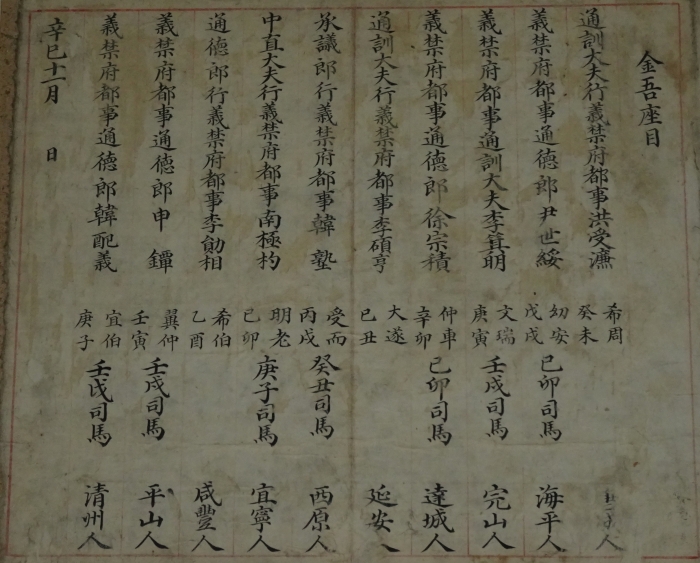 金吾座目
通訓大夫行義禁府都事洪受濂 希周 癸未 人
義禁府都事通德郎尹世綏 幼安 戊戌 己卯司馬 海平人
義禁府都事通訓大夫李箕明 文瑞 庚寅 壬戌司馬 完山人
義禁府都事通德郎徐宗積 仲車 辛卯 己卯司馬 達城人
通訓大夫行義禁府都事李碩亨 大遂 己丑 延安人
承議郎行義禁府都事韓塾 受而 丙戌 癸丑司馬 西原人
中直大夫行義禁府都事南極杓 明老 己卯 庚子司馬 宜寧人
通德郎行義禁府都事李勛相 希伯 乙酉 咸豐人
義禁府都事通德郎申鐔 翼仲 壬寅 壬戌司馬 平山人
義禁府都事通德郎韓配義 宜伯 庚子 壬戌司馬 清州人
辛巳十一月 日